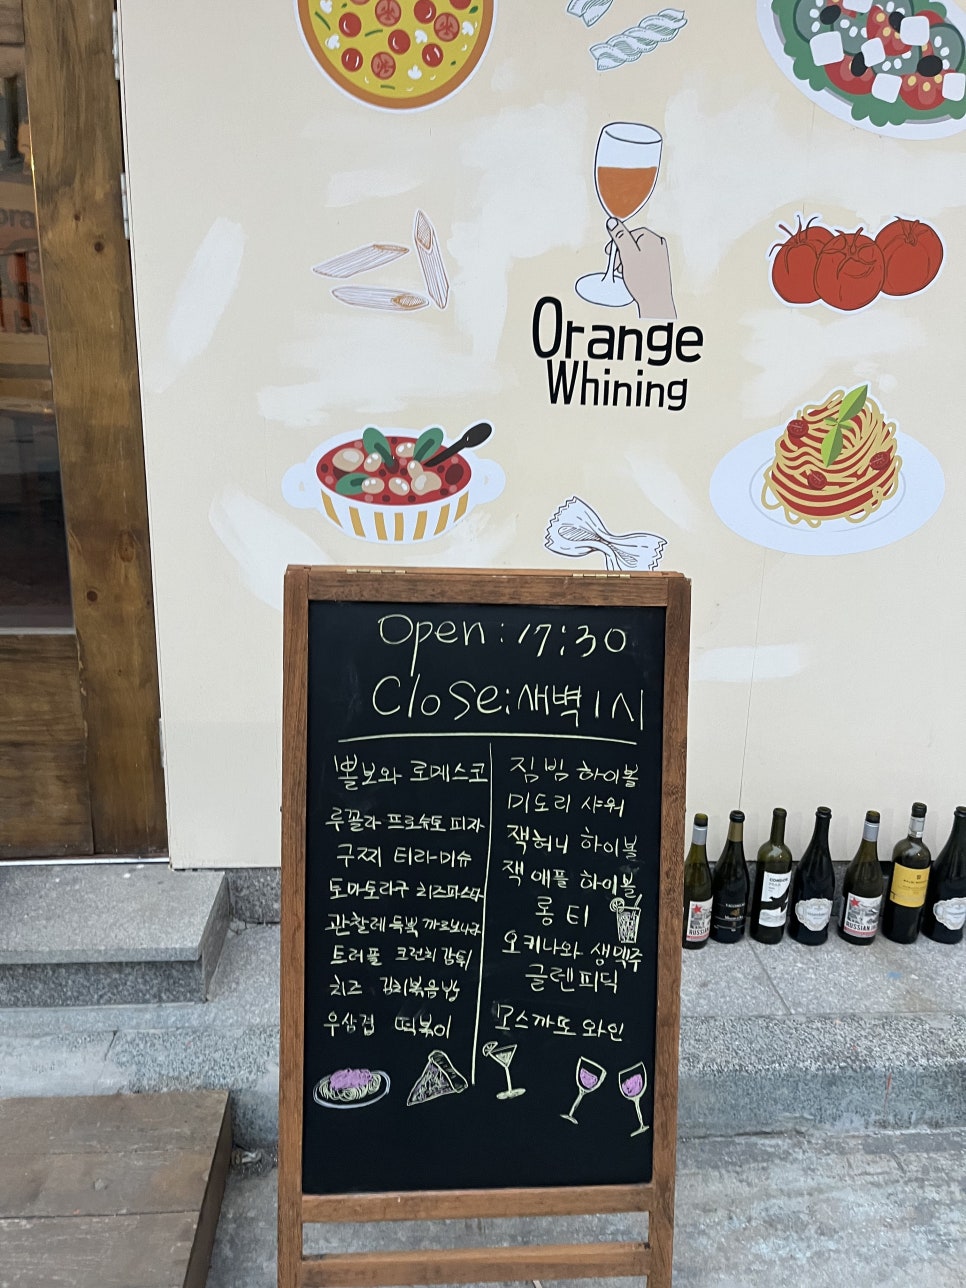 Orange
Whining
Open : 17:30
Close : 새벽 1시
뽈보와 로메스코
루꼴라 프로슈토 피자
구찌 티라미슈
토마토라구 치즈파스타
관찰레 듬뿍 까르보나라
트러플 크런치 감튀
치즈 김치볶음밥
우삼겹 떡볶이
짐빔 하이볼
미도리 샤워
잭허니 하이볼
잭 애플 하이볼
롱티
오키나와 생맥주
글렌피딕
모스까또 와인
RUSSIAN